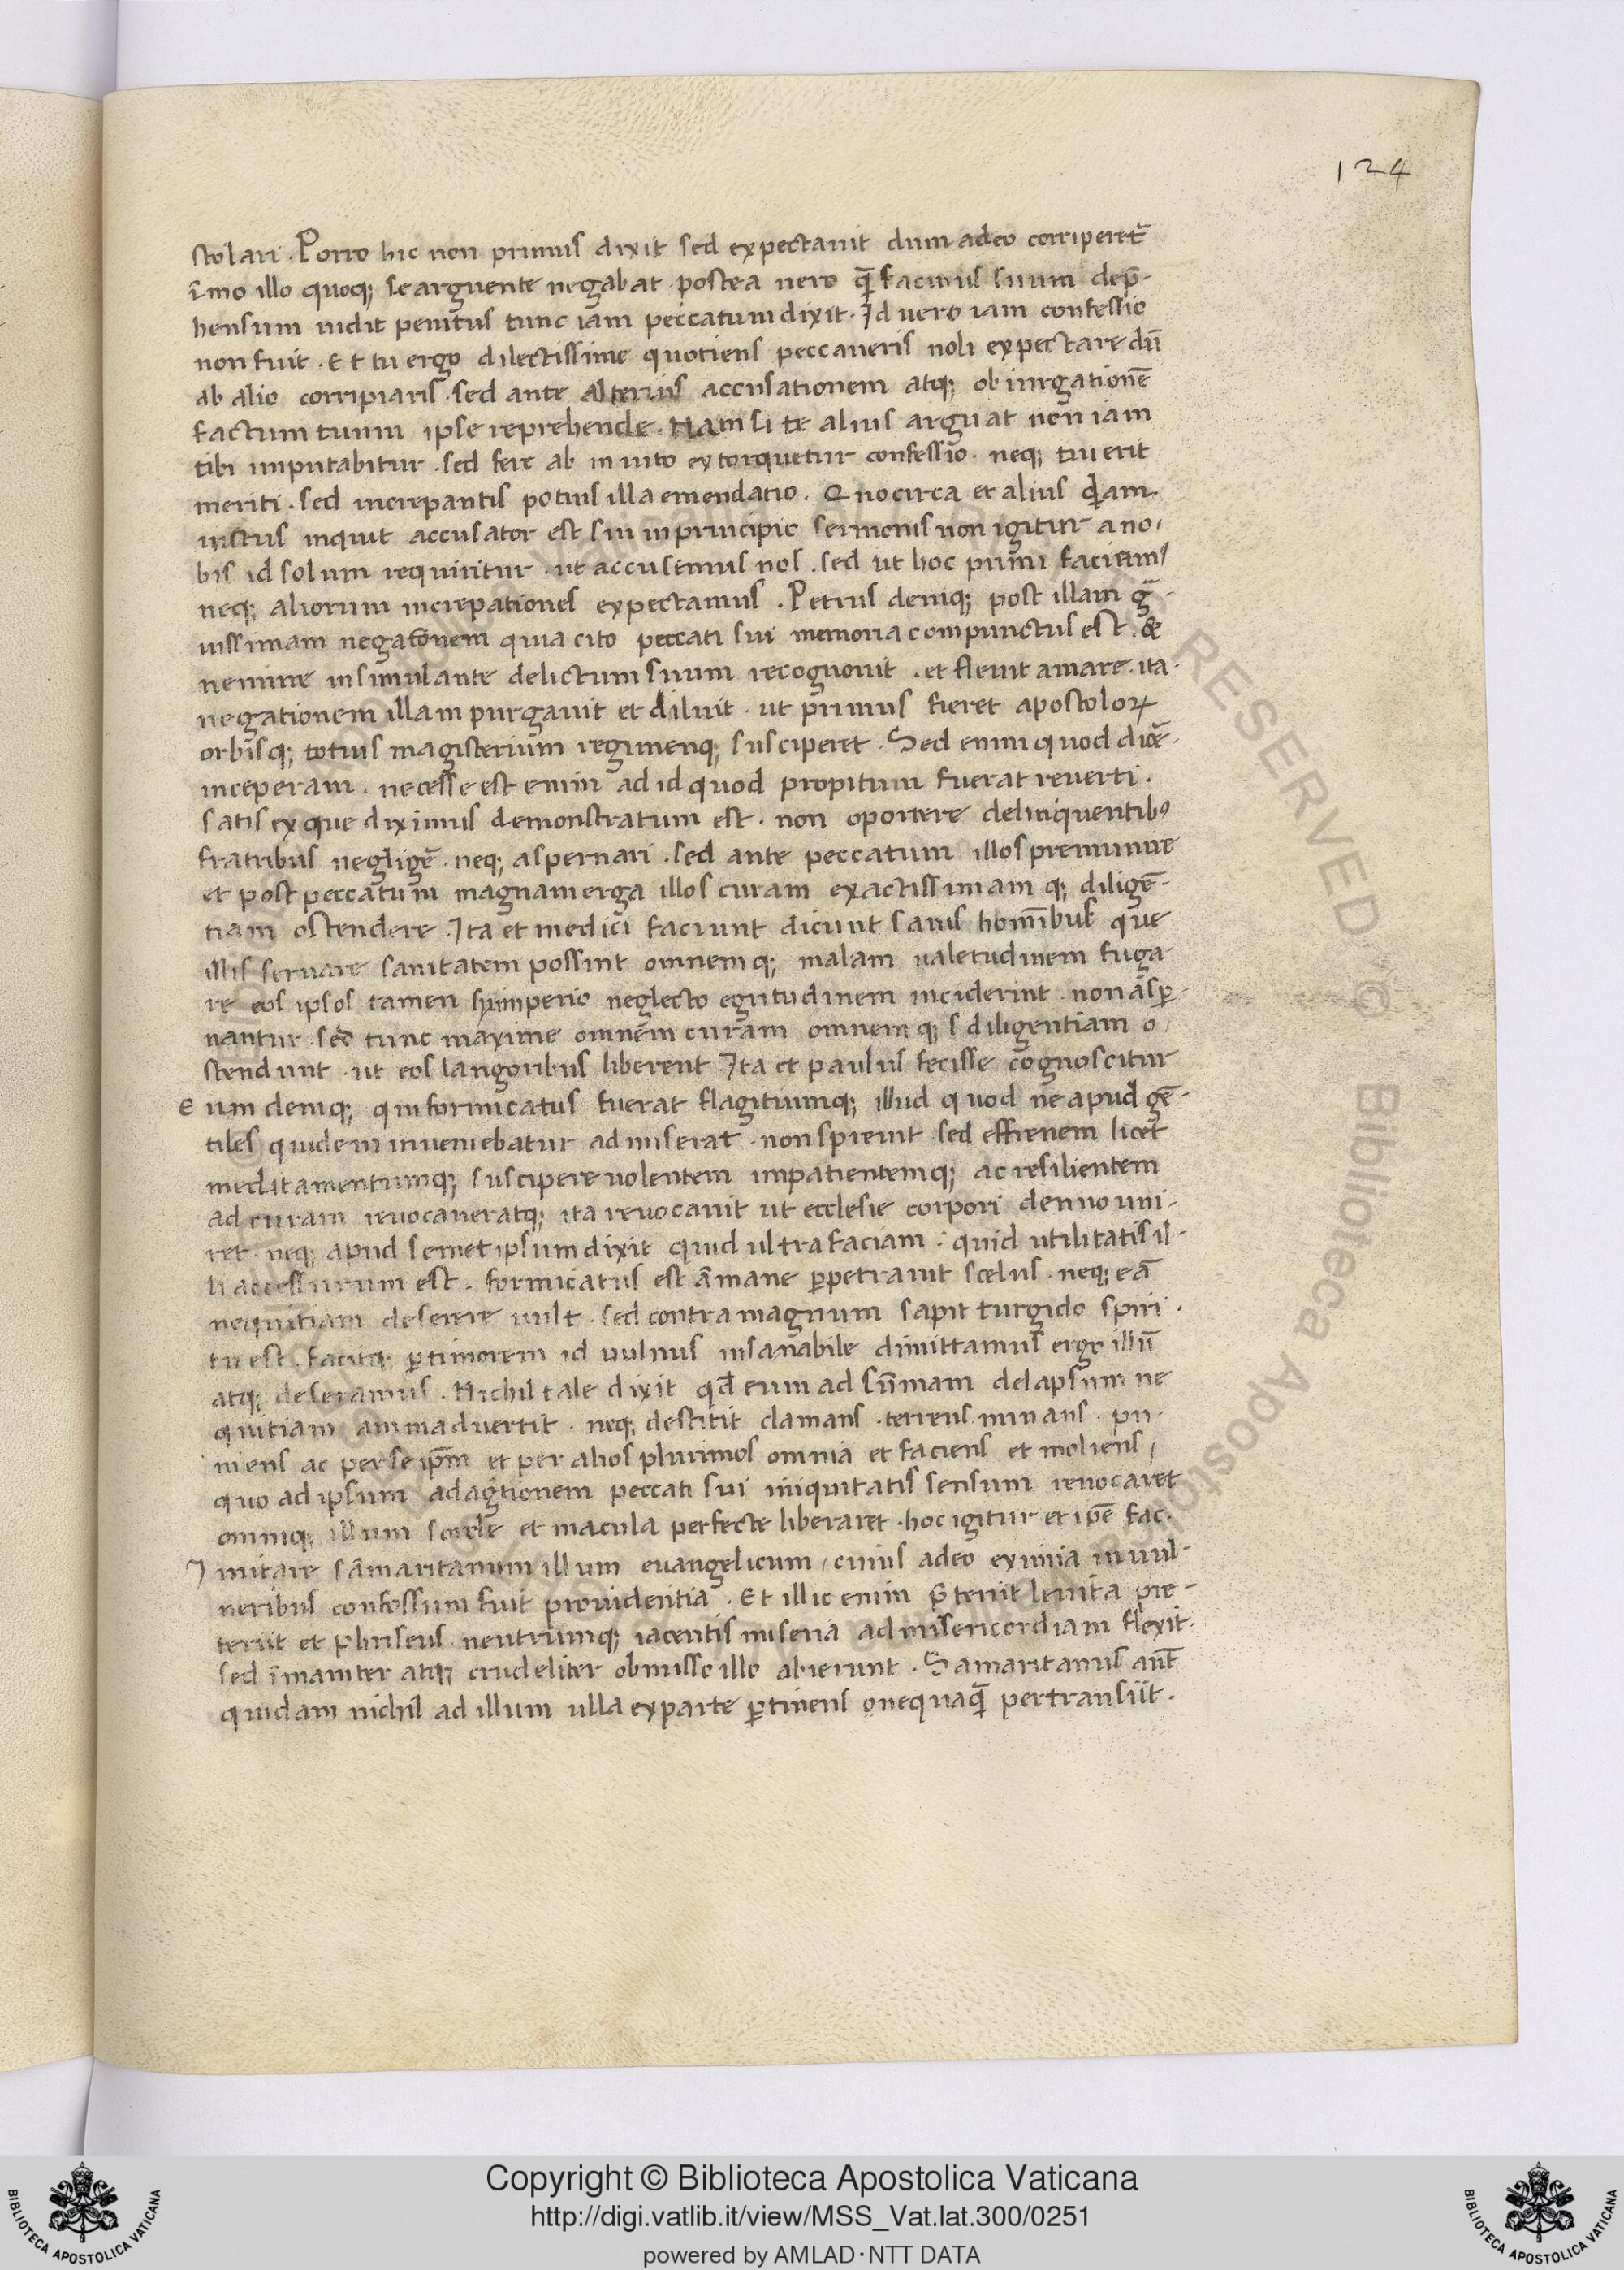 124
stolari. Porro hic non primus dixit sed expectauit dum adeo corriperet̄
īmo illo quoq; se arguente negabat. postea uero q̄ facinus suum dep̄-
hensum uidit penitus tunc iam peccatum dixit. Id uero iam confessio
non fuit. Et tu ergo dilectissime quotiens peccaueris noli expectare dū
ab alio corripiaris. sed ante alterius accusationem atq; obiurgationē
factum tuum ipse reprehende. Nam si te alius arguat non iam
tibi imputabitur. sed fere ab inuito extorquetur confessio. neq; tui erit
meriti. sed increpantis potius illa emendatio. Quocirca et alius q̄dam.
iustus inquit accusator est sui in principio sermonis non igitur a no/
bis id solum requiritur. ut accusemus nos. sed ut hoc primi faciam'
neq; aliorum increpationes expectamus. Petrus deniq; post illam ḡ-
uissimam negatōnem quia cito peccati sui memoria compunctus est. &
nemine insimulante delictum suum recognouit. et fleuit amare. ita-
negationem illam purgauit et diluit. ut primus fieret apostoloꝝ
orbisq; totius magisterium regimenq; susciperet. Sed enim quod dicē-
inceperam. necesse est enim ad id quod propitum fuerat reuerti.
satis ex que diximus demonstratum est. non oportere delinquentib'
fratribus negligē. neq; aspernari. sed ante peccatum illos premunire
et post peccatum magnam erga illos curam exactissimam q; diligē-
tiam ostendere. Ita et medici faciunt dicunt sanis homībus que
illis seruare sanitatem possint omnem q; malam ualetudinem fuga-
re eos ipsos tamen si imperio neglecto egritudinem inciderint. non asꝑ-
nantur. sed tunc maxime omnem curam omnem q; s diligentiam o/
stendunt. ut eos langoribus liberent. Ita et paulus fecisse cognoscitur
E um deniq; qui fornicatus fuerat flagitiumq; illud quod ne apud gē-
tiles quidem inueniebatur admiserat. non spreuit sed effrenem licet
meditamentumq; suscipere nolentem impatientemq; ac resilientem
ad curam reuocaueratq; ita reuocauit ut ecclesie corpori denuo uni-
ret. neq; apud semet ipsum dixit quid ultra faciam. quid utilitatis il-
li accessurum est. fornicatus est īmane ꝑpetrauit scelus. neq; eā
nequitiam deserere uult. sed contra magnum sapit turgido spiri.
tu est. facitq; ꝑ timorem id uulnus insanabile dimittamus ergo illū
atq; deseramus. Nichil tale dixit qd̄ eum ad sūmam delapsum ne
quitiam animaduertit. neq; destitit clamans. terrens minans. pu-
niens ac per se ipm̄ et per alios plurimos omnia et faciens et moliens/
quo ad ipsum ad agtionem peccati sui iniquitatis sensum reuocaret
omniq; illum scelere et macula perfecte liberaret. hoc igitur et ipē fac.
I mitare samaritanum illum euangelicum/ cuius adeo eximia in uul-
neribus confossum fuit prouidentia. Et illic enim p̄teriit leuita pre-
teriit et phriseus. neutrumq; iacentis miseria ad misericordiam flexit.
sed īmaniter atq; crudeliter obmisso illo abierunt. Samaritanus aūt
quidam nichil ad illum ulla ex parte ꝑtinens onequaq̄ pertransiit.
Copyright © Biblioteca Apostolica Vaticana
http://digi.vatlib.it/view/MSS_Vat.lat.300/0251
powered by AMLAD·NTT DATA